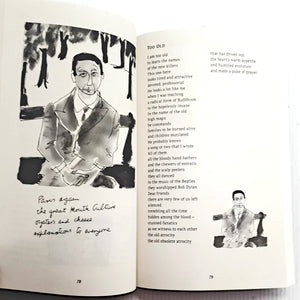 Paris again
the great Mouth Culture
oysters and cheese
explanations to everyone
78
TOO OLD
I am too old
to learn the names
of the new killers
This one here
looks tired and attractive
devoted, professorial
He looks a lot like me
when I was teaching
a radical form of Buddhism
to the hopelessly insane
In the name of the old
high magic
he commands
families to be burned alive
and children mutilated
He probably knows
a song or two that I wrote
All of them
all the bloody hand bathers
and the chewers of entrails
and the scalp peelers
they all danced
to the music of the Beatles
they worshipped Bob Dylan
Dear friends
there are very few of us left
silenced
trembling all the time
hidden among the blood –
stunned fanatics
as we witness to each other
the old atrocity
the old obsolete atrocity
79
that has driven out
the heart's warm appetite
and humbled evolution
and made a puke of prayer